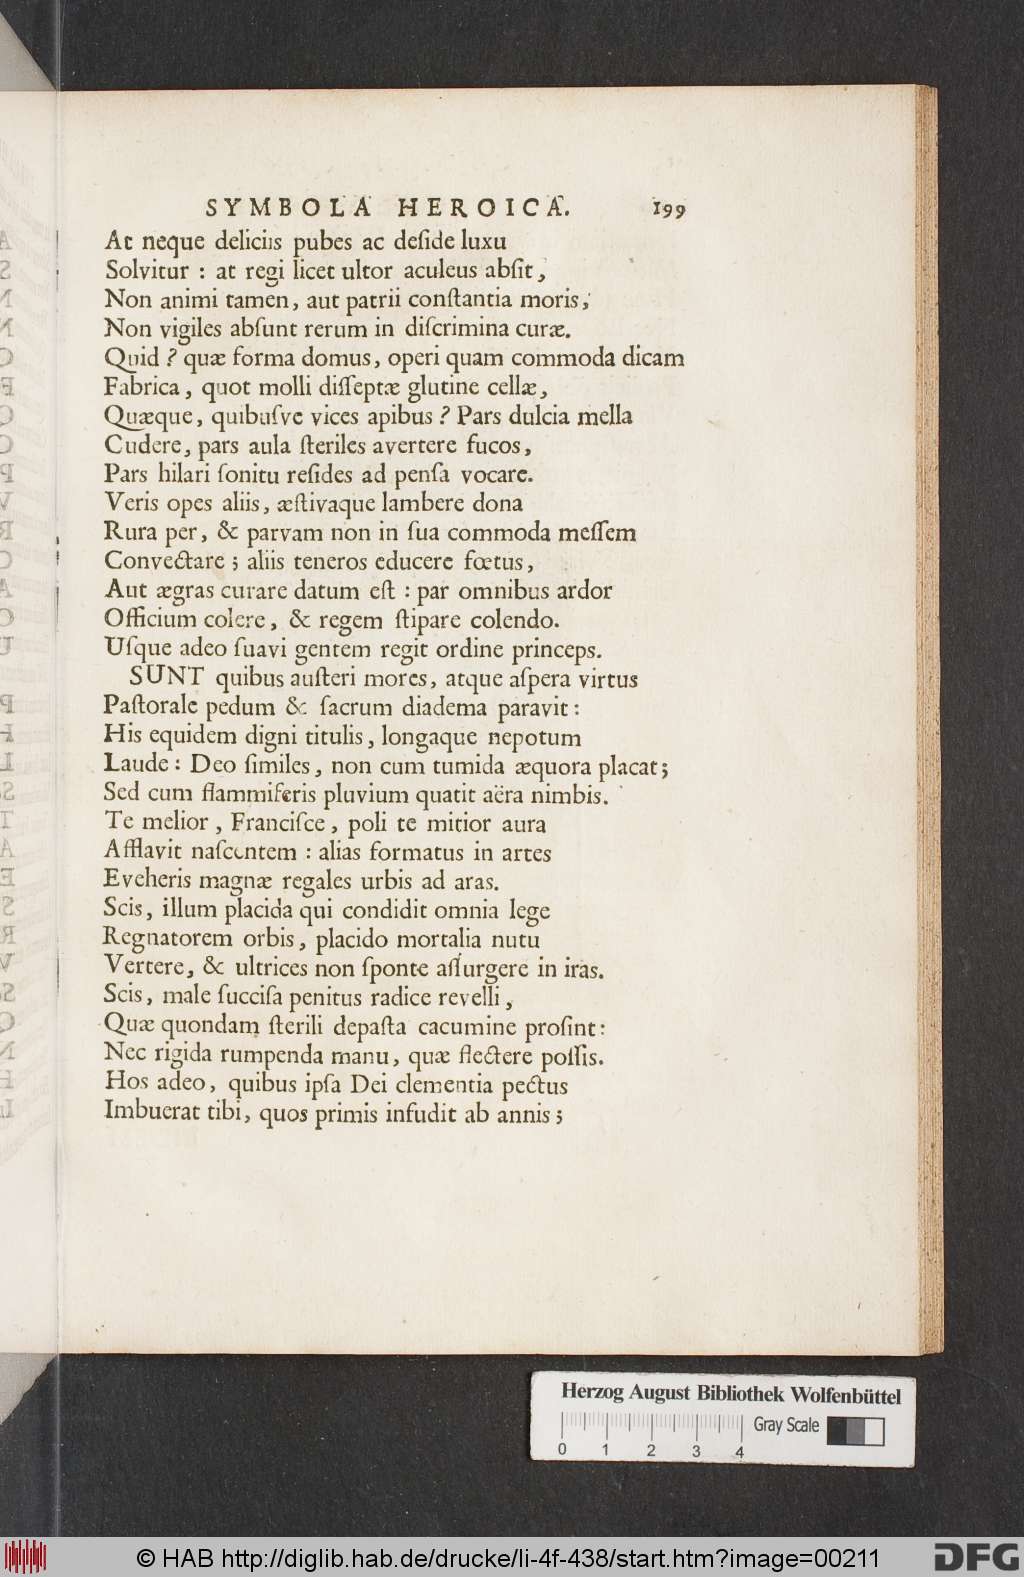 SYMBOLA HEROICA. 199
At neque deliciis pubes ac deſide luxu
Solvitur : at regi licet ultor aculeus abſit,
Non animi tamen, aut patrii conſtantia moris,
Non vigiles abſunt rerum in diſcrimina curæ.
Quid ? quæ forma domus, operi quam commoda dicam
Fabrica, quot molli diſſeptæ glutine cellæ,
Quæque, quibuſve vices apibus ? Pars dulcia mella
Cudere, pars aula ſteriles avertere fucos,
Pars hilari ſonitu reſides ad penſa vocare.
Veris opes aliis, æſtivaque lambere dona
Rura per, & parvam non in ſua commoda meſſem
Convectare ; aliis teneros educere fœtus,
Aut ægras curare datum eſt : par omnibus ardor
Officium colere, & regem ſtipare colendo.
Uſque adeo ſuavi gentem regit ordine princeps.
SUNT quibus auſteri mores, atque aſpera virtus
Paſtorale pedum & ſacrum diadema paravit :
His equidem digni titulis, longaque nepotum
Laude : Deo ſimiles, non cum tumida æquora placat ;
Sed cum flammiferis pluvium quatit aëra nimbis.
Te melior, Franciſce, poli te mitior aura
Afflavit naſcentem : alias formatus in artes
Eveheris magnæ regales urbis ad aras.
Scis, illum placida qui condidit omnia lege
Regnatorem orbis, placido mortalia nutu
Vertere, & ultrices non ſponte aſſurgere in iras.
Scis, male ſucciſa penitus radice revelli,
Quæ quondam ſterili depaſta cacumine proſint :
Nec rigida rumpenda manu, quæ flectere poſſis.
Hos adeo, quibus ipſa Dei clementia pectus
Imbuerat tibi, quos primis infudit ab annis ;
Herzog August Bibliothek Wolfenbüttel
Gray Scale
0 1 2 3 4
© HAB http://diglib.hab.de/drucke/li-4f-438/start.htm?image=00211
DFG